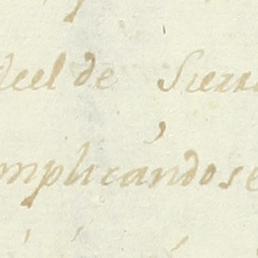 del de Sierra
mplicandose